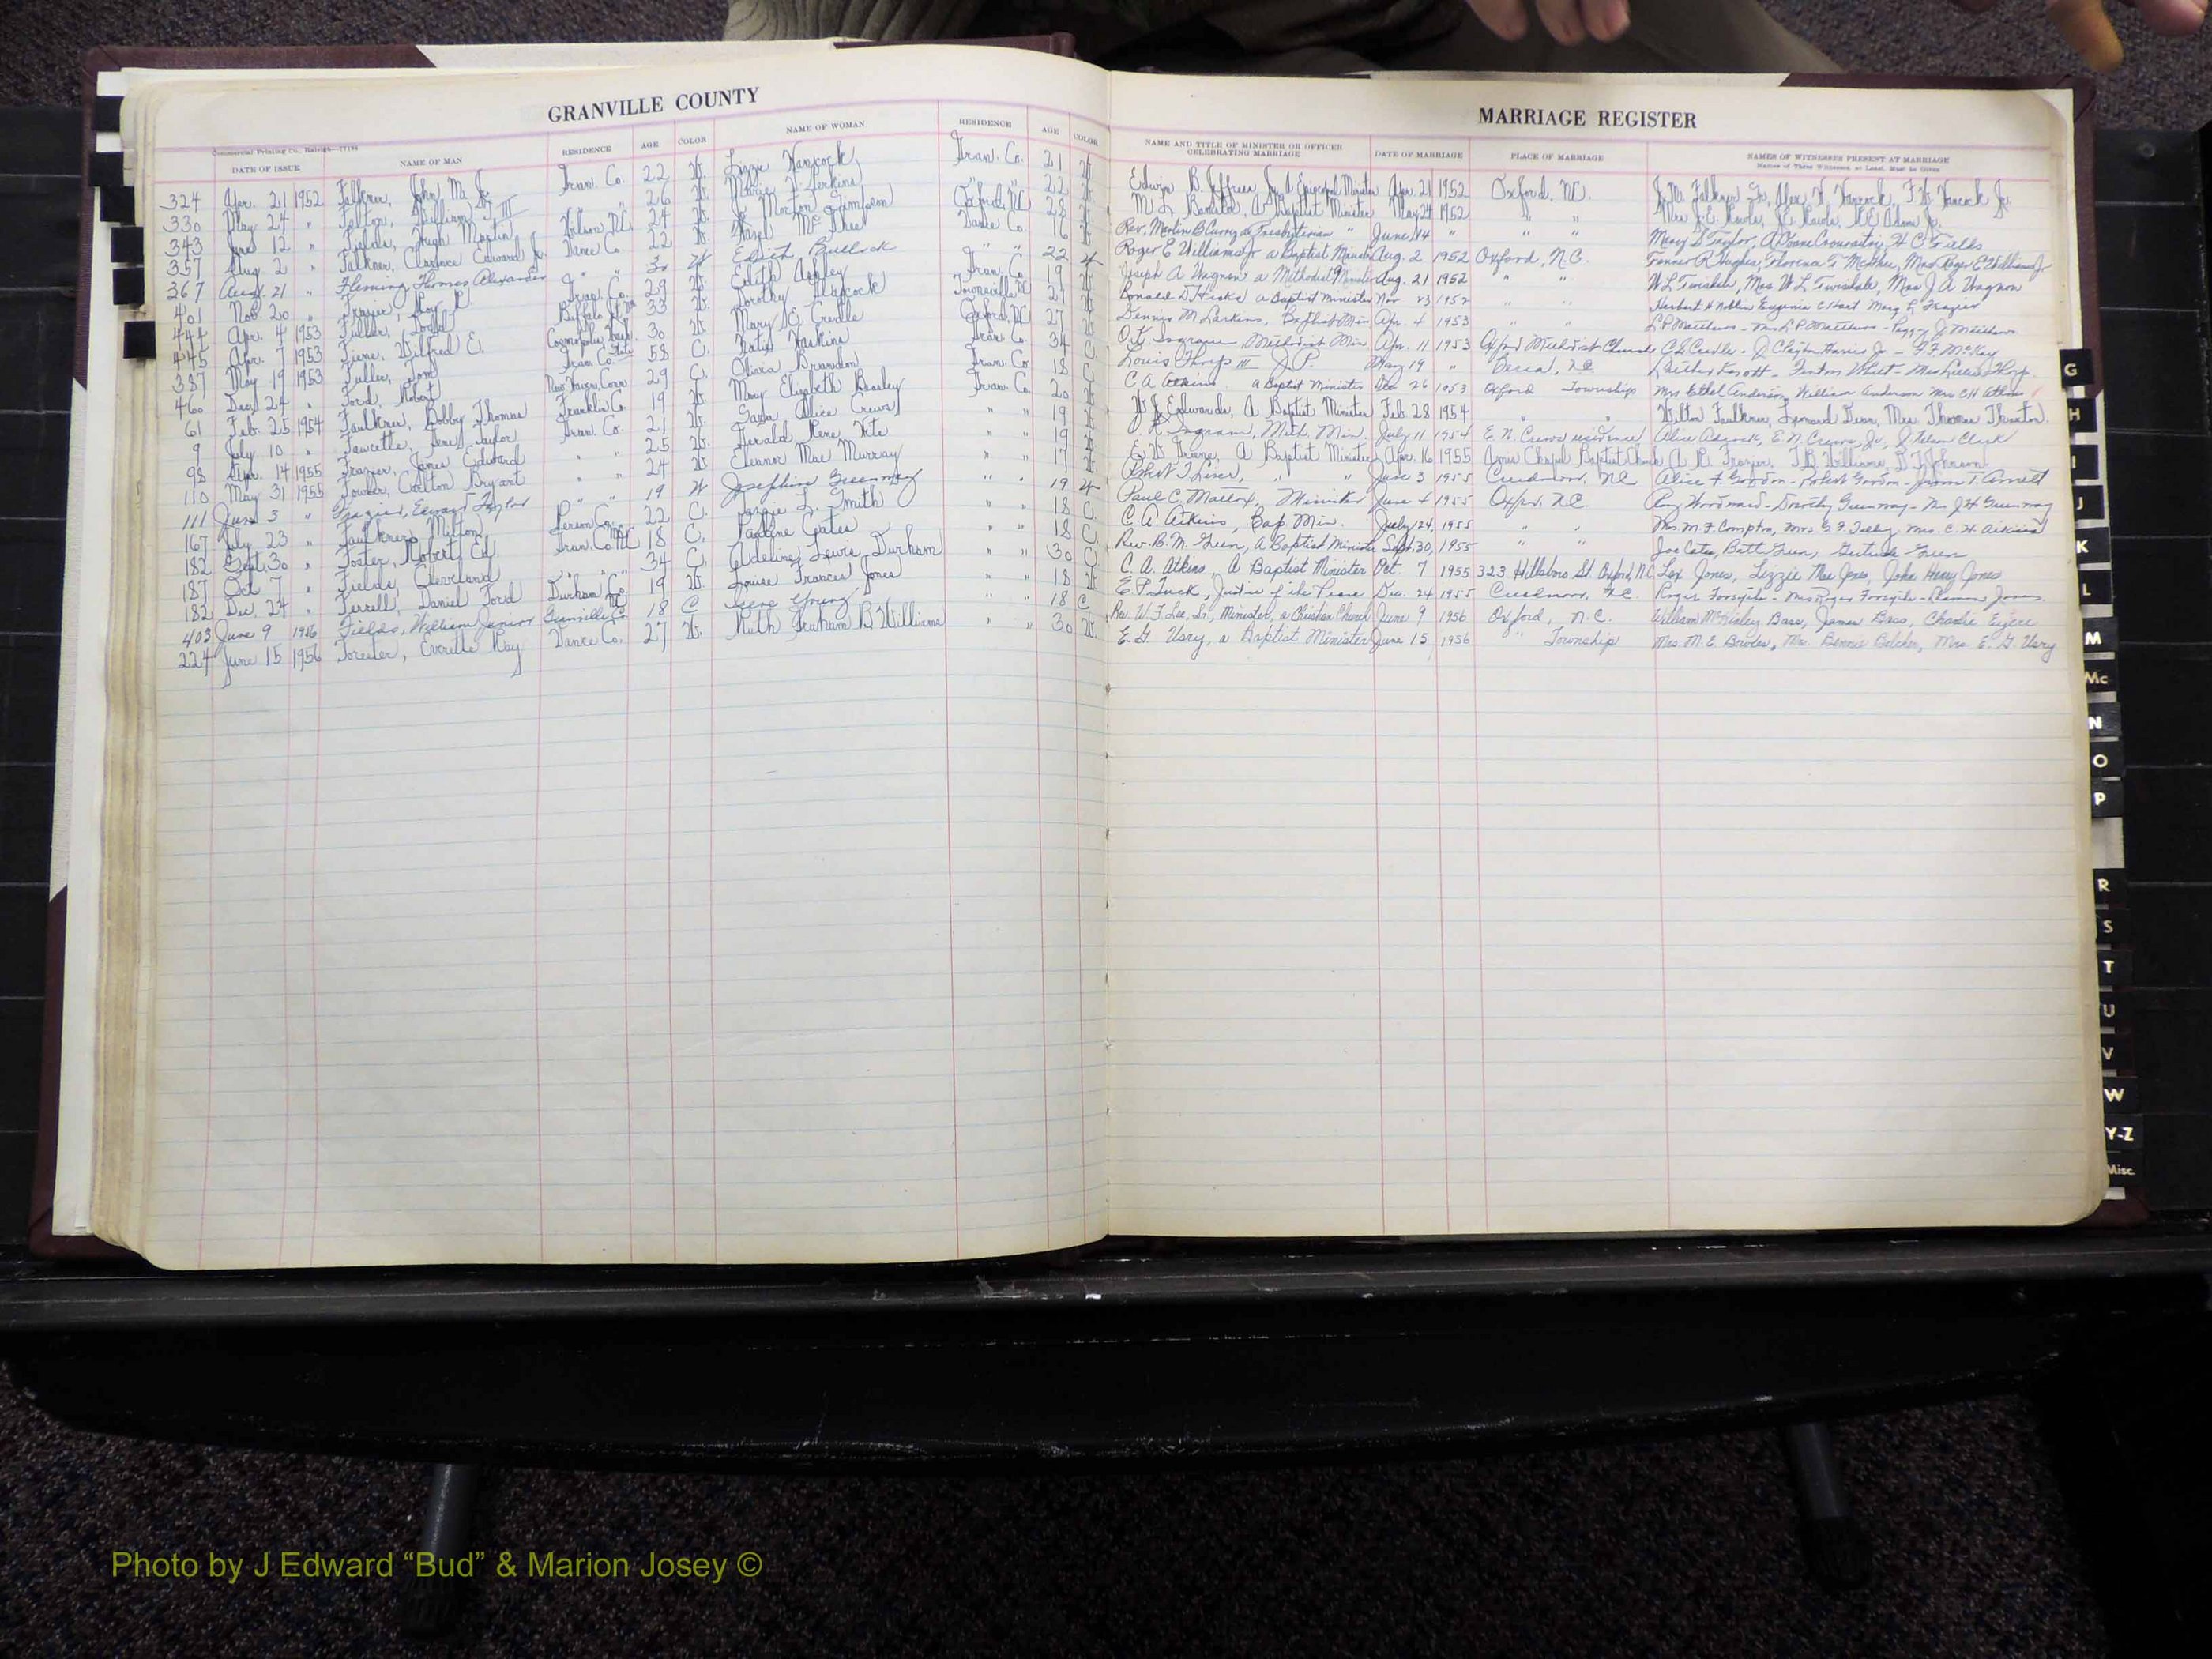 GRANVILLE COUNTY
Commercial Printing Co. Raleigh
DATE OF ISSUE NAME OF MAN RESIDENCE AGE COLOR NAME OF WOMAN RESIDENCE AGE COLOR
324 Apr. 21 1952 Falkner, John M. Jr. Gran. Co. 22 W. Lizzie Hancock Gran. Co. 21 W.
330 May 24 " William III " " 26 W. Marie Perkins " " 22 W.
343 June 12 " Fields, Hugh Martin Wilson, N.C. 24 W. Morton Simpson Oxford, N.C. 28
357 Aug. 2 " Falkner, Clarence Edward Jr. Vance Co. 22 W. Hazel McGhee Vance Co. 16
367 Aug. 21 " Fleming Thomas Alexander " " W Edith Bullock " " 22 W
401 Nov. 20 " Frazier, Roy Gran. Co. 29 W. Edith Ashley Gran. Co. 19
444 Apr. 4 1953 Fuller, 33 W. Dorothy 27
445 Apr. 7 1953 Wilfred E. 30 W. Mary E. Credle Oxford, N.C. 27
387 May 19 1953 Fuller, Tom Gran. Co. 58 C. Katie Haskins Gran. Co. 34 C.
460 Dec. 24 " Ford, Robert New Haven, Conn. 29 C. Olivia Brandon Gran. Co. 18 C
61 Feb. 25 1954 Faulkner, Bobby Thomas Franklin Co. 19 W. Mary Elizabeth Beasley Gran. Co. 20 W.
9 July 10 " Fawcette, Taylor Gran. Co. 21 W. Sara Alice Crews " " 19 W.
98 Apr. 14 1955 Frazier, James Edward " " 25 W. Gerald Rene " " 19 W.
110 May 31 1955 Fowler, Carlton Bryant " " 24 W. Eleanor Mae Murray " " 17 W.
111 June 3 " Frazier, Edward Taylor " " 19 W Josephine Greenway " " 19 W
167 July 23 " Faulkner, Milton Person Co. 22 C. L. Smith " " 18 C.
182 Sept. 30 " Foster, Robert Ed. Gran. Co. N.C. 18 C. Pauline Gates " " 18 C.
187 Oct 7 " Fields, Cleveland " " 34 C. Adeline Lewis Durham " " 30 C
182 Dec. 24 " Ferrell, Daniel Ford Durham Co. 19 W. Louise Frances Jones " " 18 W.
403 June 9 1956 Fields, William Junior Granville Co 18 C Irene Young " " 18 C
224 June 15 1956 Forester, Everette Ray Vance Co. 27 W. Ruth Graham B. Williams " " 30 W.
MARRIAGE REGISTER
NAME AND TITLE OF MINISTER OR OFFICER CELEBRATING MARRIAGE DATE OF MARRIAGE PLACE OF MARRIAGE NAMES OF WITNESSES PRESENT AT MARRIAGE
Names of Three Witnesses, at Least, Must be Given
Edwin B. Jeffress Jr. A Episcopal Minister Apr. 21 1952 Oxford, N.C. J. M. Falkner Sr., Alex H. Hancock, F. W. Hancock Jr.
M. L. Banister, A Baptist Minister May 24 1952 " "
Rev. Martin B. Curry a Presbyterian " June 14 " " " Mary S. Taylor, H C Fields
Roger E. Williams Jr a Baptist Minister Aug. 2 1952 Oxford, N.C. Fenner R Hughes, Florence G. McGhee, Mrs Roger E Williams Jr
Joseph A. Wagnon a Methodist Minister Aug. 21 1952 " " W L Twisdale, Mrs W L Twisdale, Mrs J A Wagnon
Ronald D Hicks a Baptist Minister Nov 23 1952 " " Herbert H Noblin Eugenie C Hart Mary L Frazier
Dennis M Larkins, Baptist Min Apr. 4 1953 " " L P Matthews - Mrs L P Matthews - Peggy J Matthews
O. K. Ingram, Methodist Min Apr. 11 1953 Oxford Methodist Church C. S. Credle - J Clayton Harris Jr - F. F. McKay
Louis Thorp III J. P. May 19 " Berea, N.C.
C A Atkins a Baptist Minister Dec 26 1953 Oxford Township Mrs Ethel Anderson William Anderson Mrs C H Atkins
W. J. Edwards, A Baptist Minister Feb. 28 1954 " " Wilton Faulkner, Leonard Dean, Mrs. Thomas Thornton
Ingram, Meth. Min. July 11 1954 E. N. Crews residence Alice Adcock, E. N. Crews, Jr., J Nelson Clark
E. W. A Baptist Minister Apr. 16 1955 Amis Chapel Baptist Church A. B. Frazier, T B Williams, B. T. Johnson
Robert " " June 3 1955 Creedmoor, N.C Alice F Gordon - Robert Gordon -
Paul C. Mattox, Minister June 4 1955 Oxford, N.C Ray Woodward - Dorothy Greenway - Mrs J H Greenway
C. A. Atkins, Bap. Min. July 24, 1955 " " Mrs. M. F. Compton, Mrs. E. F. Mrs. C. H. Atkins
Rev. B. M. Green, A Baptist Minister Sept. 30, 1955 " " Joe Cates, Batt Green, Gertrude Green
C. A. Atkins, A Baptist Minister Oct. 7 1955 323 Hillsboro St. Oxford, N.C. Lex Jones, Lizzie Mae Jones, John Henry Jones
E. P. Tuck, Justice of the Peace Dec. 24 1955 Creedmoor, N.C. Roger Forsythe - Mrs Roger Forsythe - Jones
Rev. W. T. Lee, Sr., Minister, a Christian Church June 9 1956 Oxford, N.C. William McKinley Bass, James Bass, Charlie
E. G. Usry, a Baptist Minister June 15 1956 " Township Mrs. M. E. Bowles, Mrs. Bennie Belcher, Mrs. E. G. Usry
G
H
I
J
K
L
M
Mc
N
O
P
R
S
T
U
V
W
Y-Z
Misc.
Photo by J Edward “Bud” & Marion Josey ©